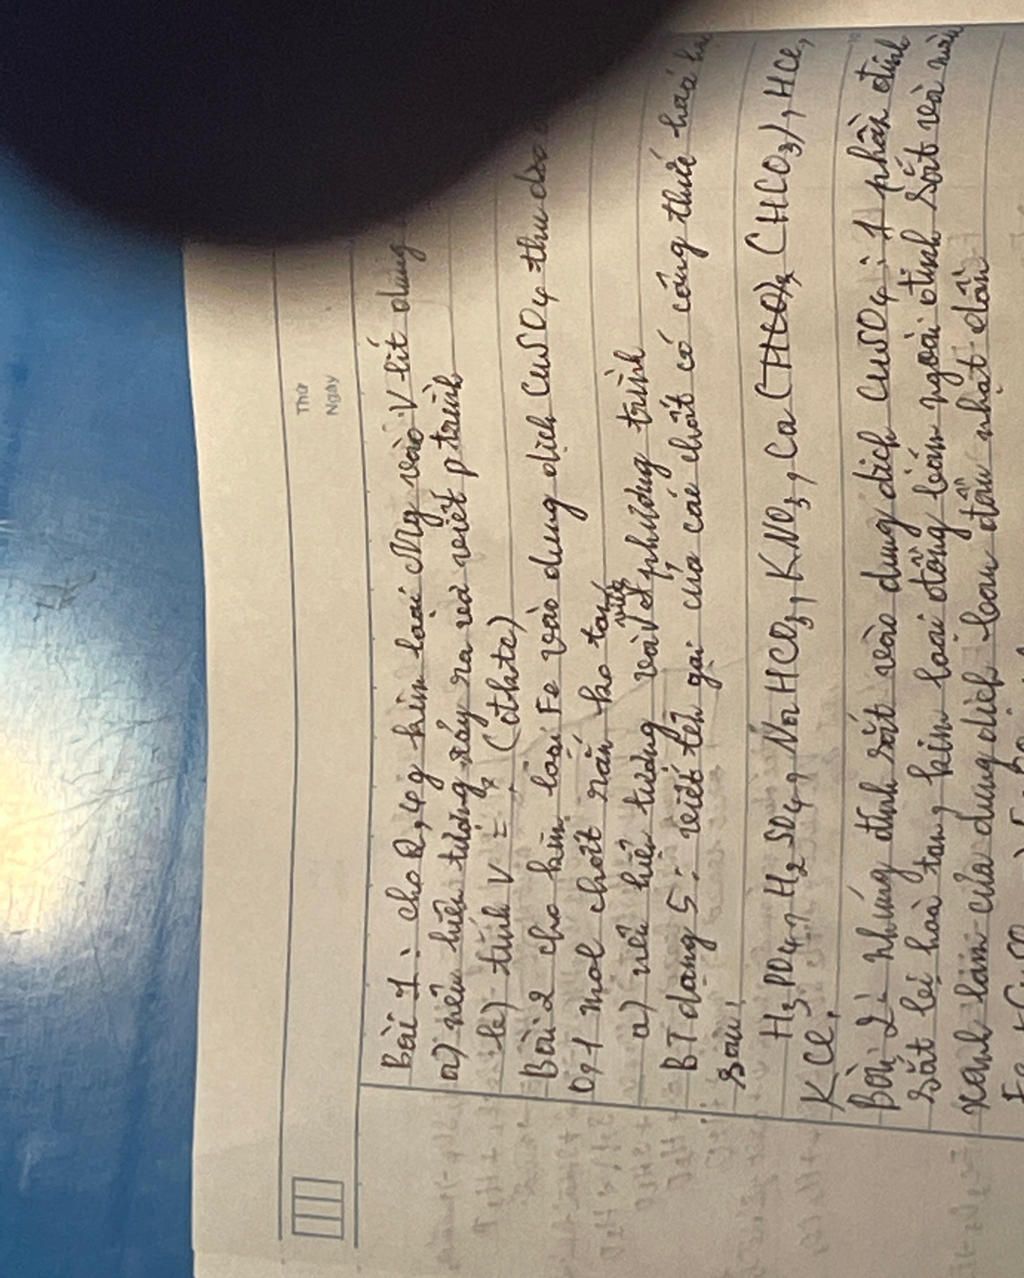 Thứ
Ngày
Bài 1: cho 2,4g kim loại Mg vào V lít dung
a) nêu hiện tượng xảy ra và viết p trình
b) tính V = ? (đktc)
Bài 2 cho kim loại Fe vào dung dịch CuSO4 thu được
0,1 mol chất rắn ko tan
a) nêu hiện tượng và viết phương trình
BT dạng 5: viết tên gọi của các chất có công thức hoá
sau:
H3PO4, H2SO4, NaHCO3, KNO3, Ca (HCO3), HCl,
KCl,
Bài 2: nhúng đinh sắt vào dung dịch CuSO4: 1 phần đinh
sắt bị hoà tan, kim loại đồng bám ngoài đinh sắt và màu
xanh lam của dung dịch ban đầu nhạt dần